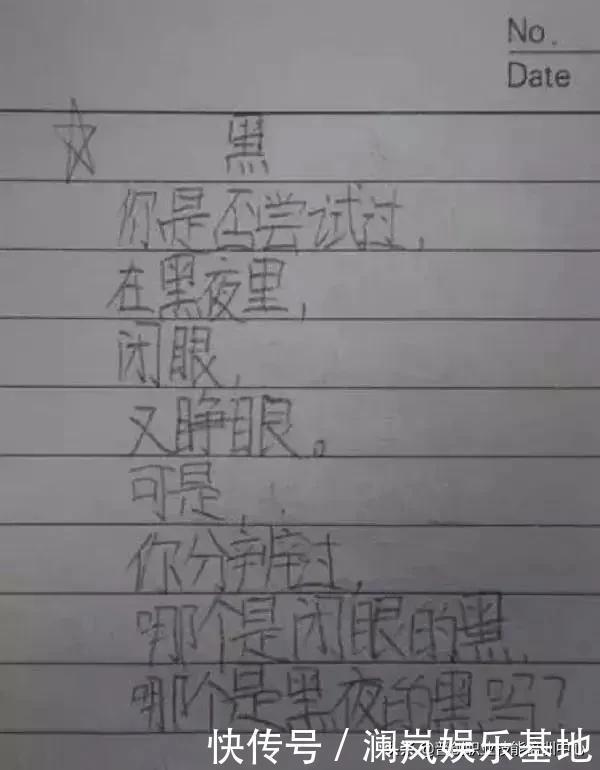 No.
Date
黑
你是否尝试过，
在黑夜里，
闭眼，
又睁眼。
可是，
你分辨过，
哪个是闭眼的黑，
哪个是黑夜的黑吗？
快传号 / 澜岚娱乐基地